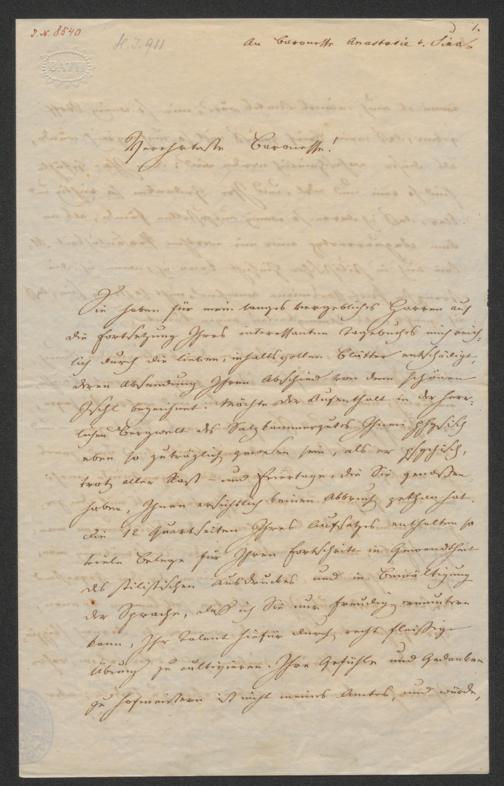 J.N. 8540
H.I. 911
1.
An Baronesse Anastasie v. Sina.
BATH
Verehrteste Baronesse!
Sie haben für mein langes vergebliches Harren auf
die Fortsetzung Ihres interessanten Tagebuches mich reich-
lich durch die lieben, inhaltsvollen Blätter entschädigt,
deren Absendung Ihren Abschied von dem schönen
Ischl bezeichnet. Möchte der Aufenthalt in der herr-
lichen Bergwelt des Salzkammergutes Ihnen physisch
eben so zuträglich gewesen sein, als er psychisch,
trotz aller Rast- und Feiertage, die Sie genossen
haben, Ihnen ersichtlich keinen Abbruch gethan hat.
Die 12 Quartseiten Ihres Aufsatzes enthalten so
viele Belege für Ihren Fortschritt in Gewandtheit
des stilistischen Ausdruckes und in Bewältigung
der Sprache, daß ich Sie nur freudig ermuntern
kann, Ihr Talent hiefür durch recht fleißige
Übung zu cultiviren. Ihre Gefühle und Gedanken
zu hofmeistern ist nicht meines Amtes, und würde,